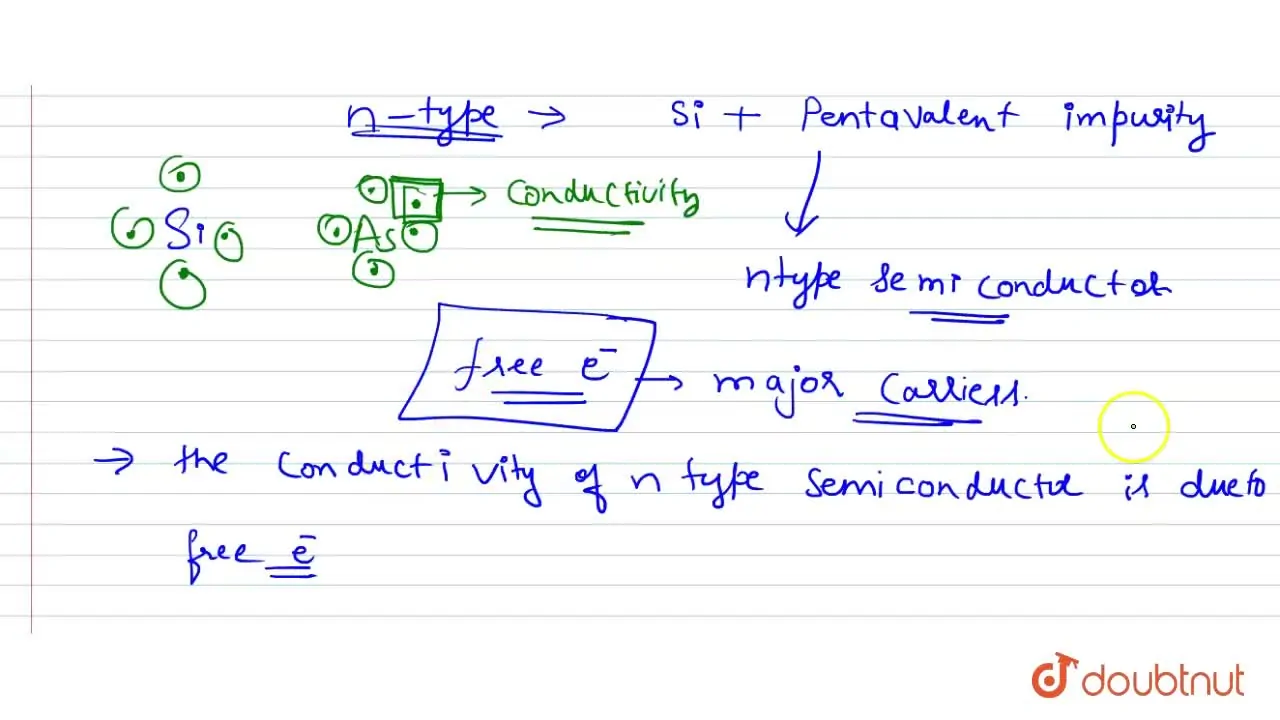 n-type → Si + Pentavalent impurity
Si As → Conductivity
ntype semiconductor
free e⁻ → major Carriers.
→ the conductivity of n type semiconductor is dueto
free e⁻
doubtnut